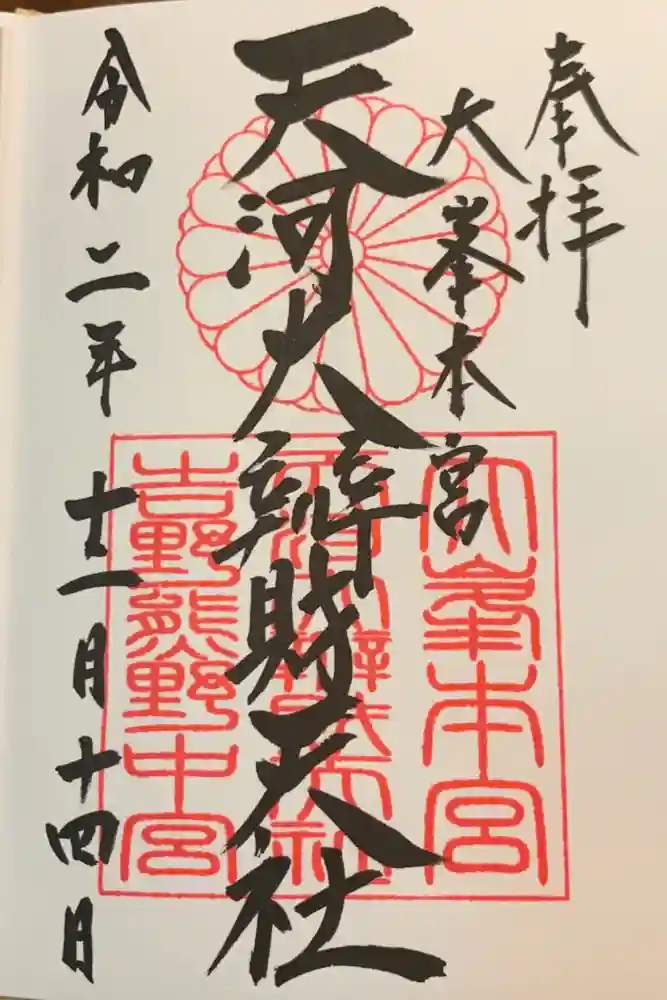 奉拝
大峯本宮
天河大辨財天社
令和二年十一月十四日
大峯本宮
吉野熊野中宮